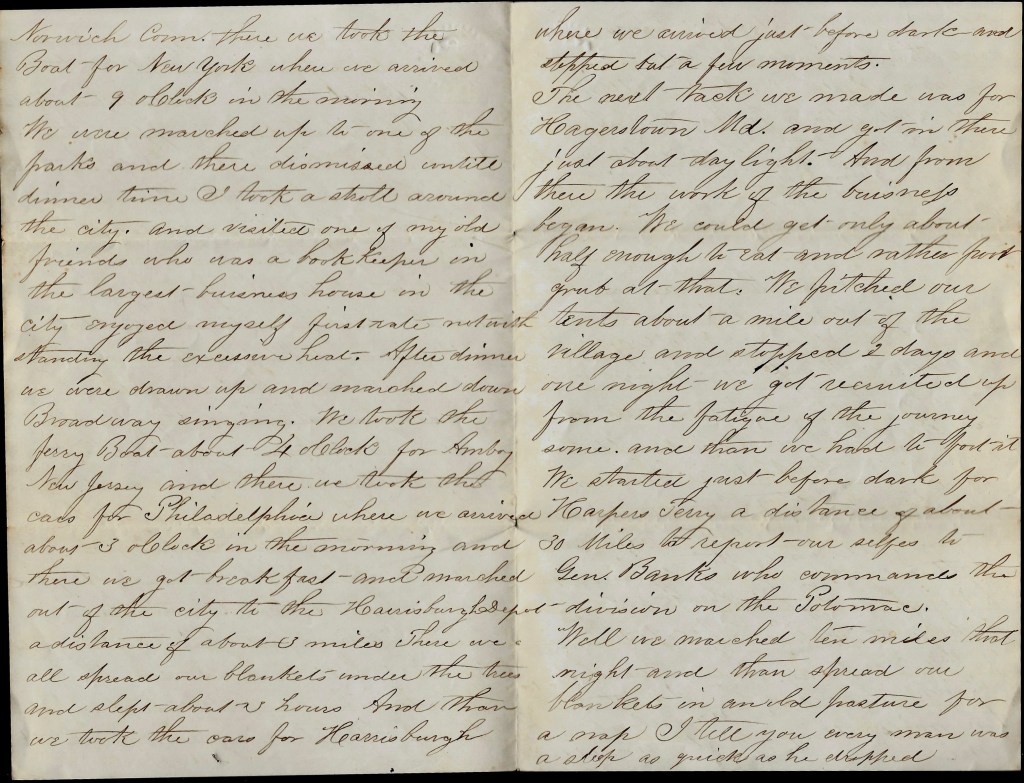 Norwich Conn. there we took the
Boat for New York where we arrived
about 9 oClock in the morning
We were marched up to one of the
parks and there dismissed untill
dinner time I took a stroll around
the city. and visited one of my old
friends who was a book keeper in
the largest buisness house in the
city enjoyed myself first rate notwith
standing the excessive heat. After dinner
we were drawn up and marched down
Broadway singing. We took the
ferry Boat about 4 oClock for Amboy
New Jersey and there we took the
cars for Philadelphia where we arrived
about 3 oClock in the morning and
there we got breakfast and marched
out of the city to the Harrisburgh Depot
a distance of about 3 miles There we
all spread our blankets under the trees
and slept about 2 hours And than
we took the cars for Harrisburgh
where we arrived just before dark and
stopped but a few moments.
The next tack we made was for
Hagerstown Md. and got in there
just about day light. And from
there the work of the buisness
began. We could get only about
half enough to eat and rather poor
grub at that. We pitched our
tents about a mile out of the
village and stopped 2 days and
one night we got recruited up
from the fatigue of the journey
some. and than we had to foot it
We started just before dark for
Harpers Ferry a distance of about
30 Miles to report our selfes to
Gen. Banks who commands the
division on the Potomac.
Well we marched ten miles that
night and than spread our
blankets in an old pasture for
a nap I tell you every man was
a sleep as quick as he dropped